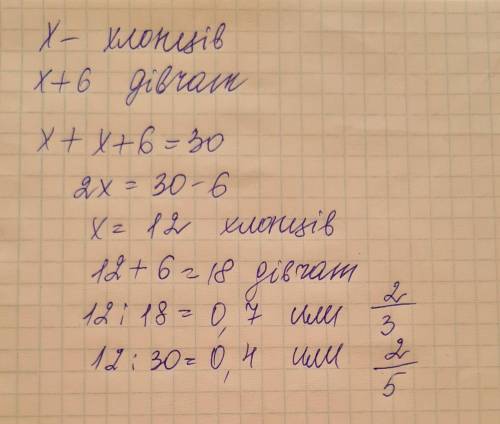 x – хлопців
x+6 дівчат
x + x+6 = 30
2x = 30-6
x = 12 хлопців
12 + 6 = 18 дівчат
12 : 18 = 0,7 или 2/3
12 : 30 = 0,4 или 2/5